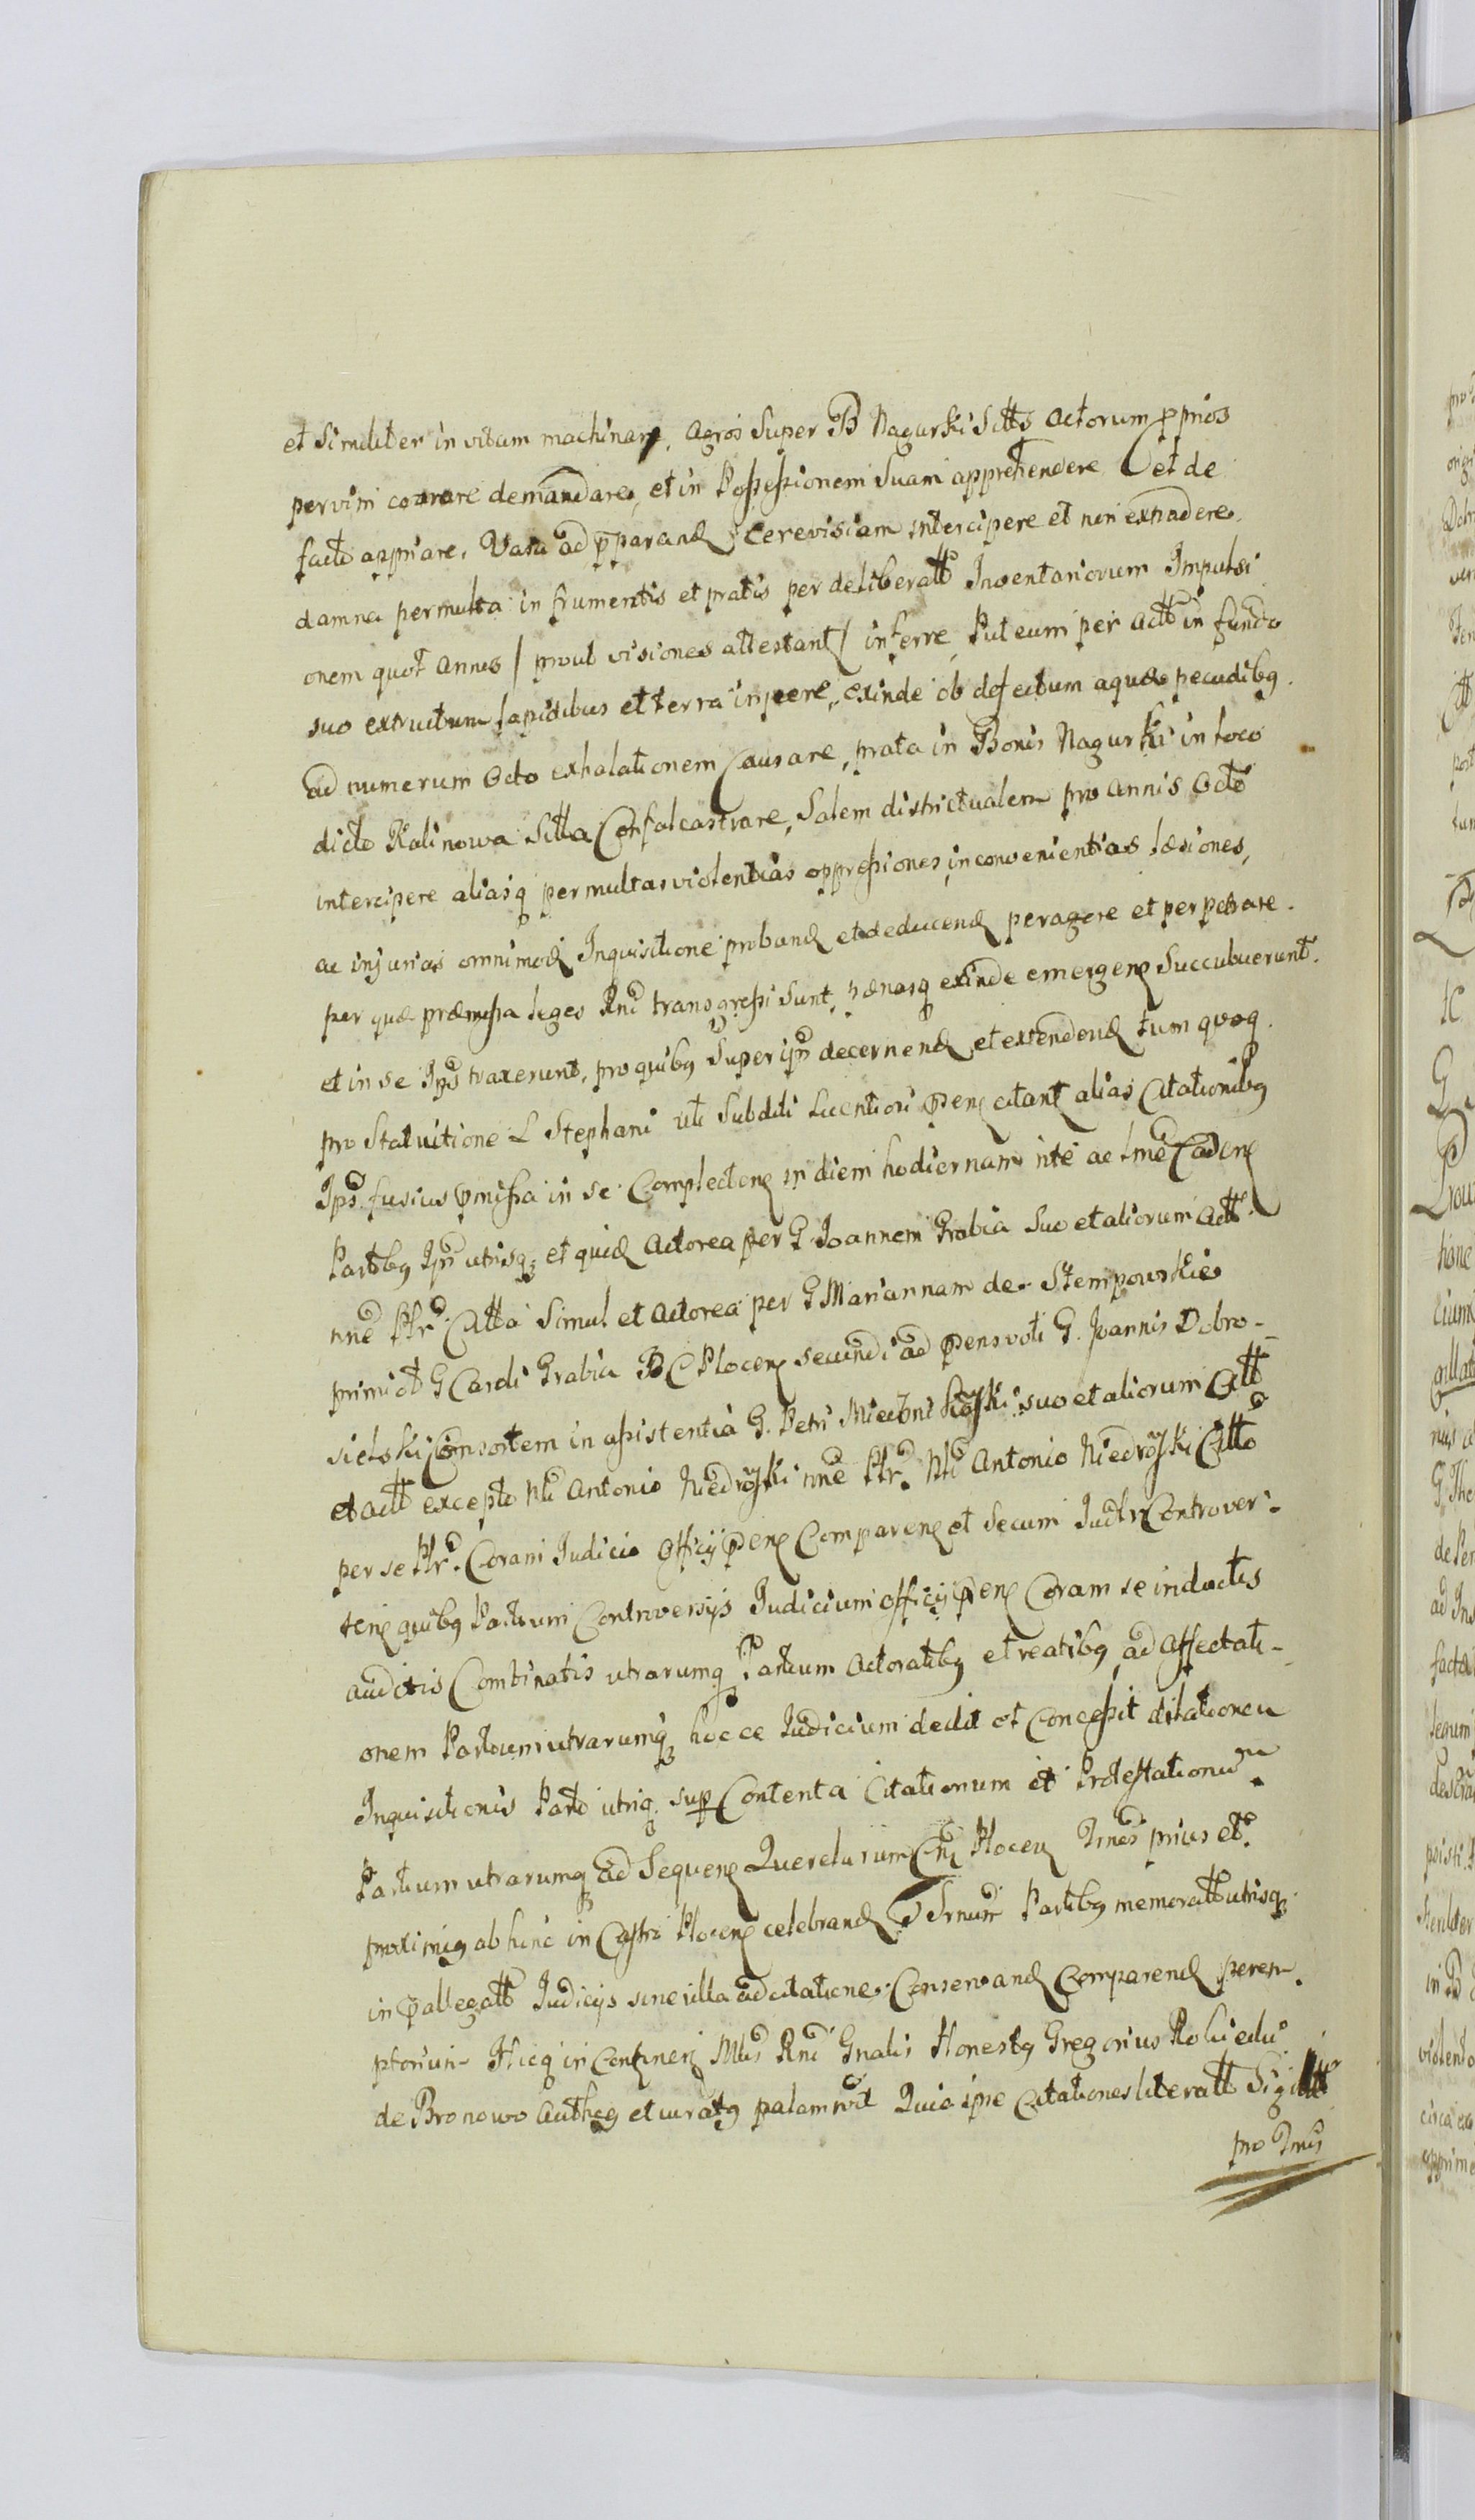 et Similiter in vitam machinare, Agros Super B Nagurki Sitts Actorum pprios
per vim coarare demandare, et in Possessionem Suam apprehendere et de
facto appriare, Vasa ad pparand Cerevisiam intercipere et non extradere,
damna permulta in frumentis et pratis per deliberatt Inventariorum Impulsi
onem quot Annis / prout visiones attestant / inferre, Puteum per Actt in fundo
suo extructum lapidibus et terra injicere, exinde ob defectum aquæ pecudibq
ad numerum Octo exhalationem Causare, prata in Bonis Nagurki in loco
dicto Kalinowa Sitta Confalcastrare, Salem districtualem pro Annis Octo
intercipere aliasq permultas violentias oppressiones inconvenientias læsiones,
ac injurias omnimod Inquisitione proband et deducend peragere et perpetrare.
per quæ præmissa leges Rni transgressi Sunt, pænasq exinde emergen Succubuerunt
et in se Ips traxerunt, pro quibq Super ips decernend et extendend tum quoq
pro Statuitione L Stephani uti Subditi Lucntiori pen citant alias Citationibq
Ips fusius pmissa in se Complecten in diem hodiernam nte ac lme Caden
Partibq Ips utrisq et quid Actorea per G Joannem Grabia Suo et aliorum Actt
nne Ptr Citta Simul et Actorea per G Mariannam de Stempowskie
primi ot G Caroli Grabia B C Plocen secundi ad pens voti G. Joannis Dobro-
sielski Consortem in assistentia G. Petri Miecznikoski suo et aliorum Citt
et Actt excepto Nli Antonio Niedroski nne Ptr. Nli Antonio Niedroski Citto
per se Ptr. Coram Judicio Officij pen Comparen et Secum Judtr Controver-
ten quibq Partium Controversijs Judicium officij pen Coram se inductis
auditis Combinatis utrarumq Partium Actoratibq et reatibq ad Affectati-
onem Partium utrarumq hocce Judicium dedit et Concessit dilationem
Inquisitionis Parti utriq sup Contenta Citationum et Protestationum
Partium utrarumq ad Sequen Querelarum Cn Plocen Tmos prius et
proximiq ab hinc in Castro Plocen celebrand Trnum Partibq memoratt utrisq
in pallegatt Judicijs sine ulla adcitatione Conservand Comparend perem-
ptorium Hicq in Continen Mtrs Rni Gnalis Honestq Gregorius
de Bronowo Authcq et juratq palam rvit Quia ipse Citationes literatt Sigillt
pro Tmis